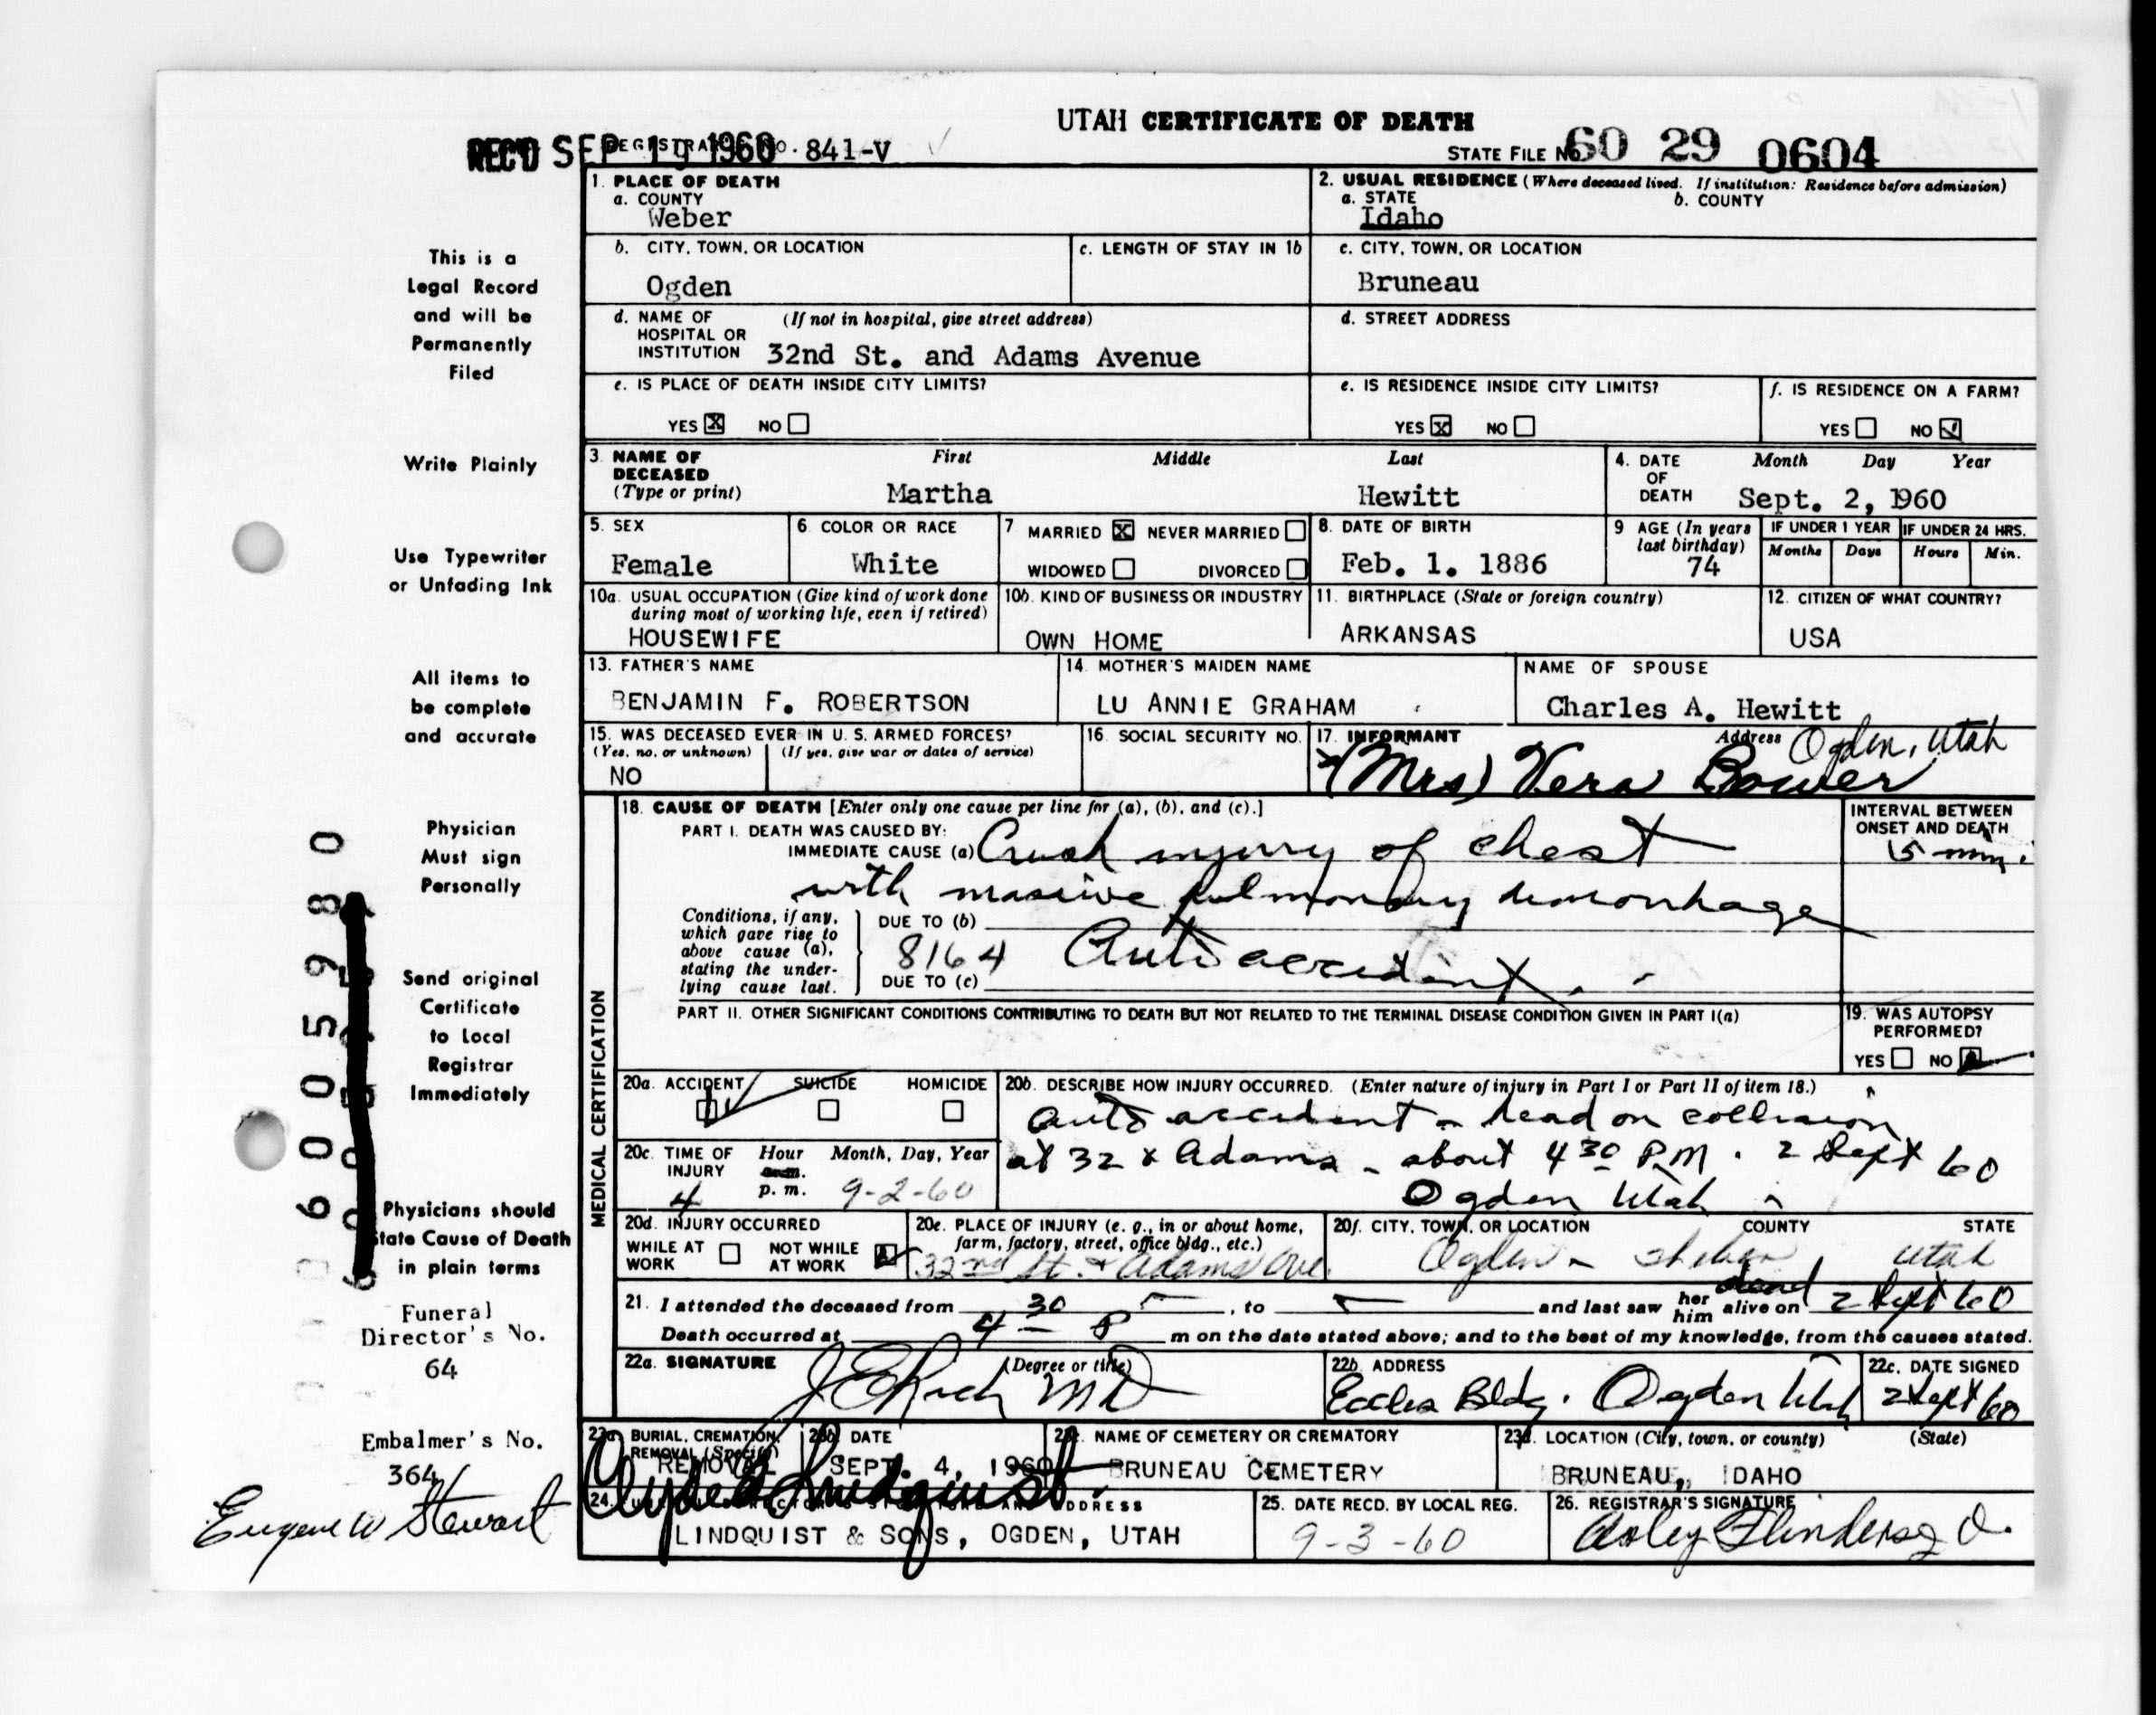 UTAH CERTIFICATE OF DEATH
REC'D SEP 19 1960 REGISTRAR'S NO. 841-V
STATE FILE NO. 60 29 0604
1. PLACE OF DEATH
a. COUNTY
Weber
2. USUAL RESIDENCE (Where deceased lived. If institution: Residence before admission)
a. STATE b. COUNTY
Idaho
b. CITY, TOWN, OR LOCATION
Ogden
c. LENGTH OF STAY IN 1b
c. CITY, TOWN, OR LOCATION
Bruneau
d. NAME OF HOSPITAL OR INSTITUTION (If not in hospital, give street address)
32nd St. and Adams Avenue
d. STREET ADDRESS
e. IS PLACE OF DEATH INSIDE CITY LIMITS?
YES X NO
e. IS RESIDENCE INSIDE CITY LIMITS?
YES X NO
f. IS RESIDENCE ON A FARM?
YES NO
3. NAME OF DECEASED (Type or print)
First Middle Last
Martha Hewitt
4. DATE OF DEATH
Month Day Year
Sept. 2, 1960
5. SEX
Female
6. COLOR OR RACE
White
7 MARRIED X NEVER MARRIED
WIDOWED DIVORCED
8. DATE OF BIRTH
Feb. 1. 1886
9 AGE (In years last birthday)
74
IF UNDER 1 YEAR
Months Days
IF UNDER 24 HRS.
Hours Min.
10a. USUAL OCCUPATION (Give kind of work done during most of working life, even if retired)
HOUSEWIFE
10b. KIND OF BUSINESS OR INDUSTRY
OWN HOME
11. BIRTHPLACE (State or foreign country)
ARKANSAS
12. CITIZEN OF WHAT COUNTRY?
USA
13. FATHER'S NAME
BENJAMIN F. ROBERTSON
14. MOTHER'S MAIDEN NAME
LU ANNIE GRAHAM
NAME OF SPOUSE
Charles A. Hewitt
15. WAS DECEASED EVER IN U. S. ARMED FORCES?
(Yes, no, or unknown) (If yes, give war or dates of service)
NO
16. SOCIAL SECURITY NO.
17. INFORMANT Address Ogden, Utah
(Mrs) Vera Bower
MEDICAL CERTIFICATION
18. CAUSE OF DEATH [Enter only one cause per line for (a), (b), and (c).]
PART I. DEATH WAS CAUSED BY:
IMMEDIATE CAUSE (a) Crush injury of chest
with massive pulmonary hemorrhage
INTERVAL BETWEEN ONSET AND DEATH
15 min.
Conditions, if any, which gave rise to above cause (a), stating the underlying cause last.
DUE TO (b)
8164 Auto accident
DUE TO (c)
PART II. OTHER SIGNIFICANT CONDITIONS CONTRIBUTING TO DEATH BUT NOT RELATED TO THE TERMINAL DISEASE CONDITION GIVEN IN PART I(a)
19. WAS AUTOPSY PERFORMED?
YES NO
20a. ACCIDENT SUICIDE HOMICIDE
20b. DESCRIBE HOW INJURY OCCURRED. (Enter nature of injury in Part I or Part II of item 18.)
auto accident - head on collision
at 32 & Adams - about 4 30 P.M. 2 Sept 60
Ogden Utah
20c. TIME OF INJURY Hour Month, Day, Year
a.m.
4 p. m. 9-2-60
20d. INJURY OCCURRED
WHILE AT WORK NOT WHILE AT WORK
20e. PLACE OF INJURY (e. g., in or about home, farm, factory, street, office bldg., etc.)
32nd St. & Adams Ave.
20f. CITY, TOWN, OR LOCATION COUNTY STATE
Ogden Utah
21. I attended the deceased from , to and last saw her him dead alive on 2 Sept 60
Death occurred at 4 30 P m on the date stated above; and to the best of my knowledge, from the causes stated.
22a. SIGNATURE (Degree or title)
J E Rich MD
22b. ADDRESS
Eccles Bldg. Ogden Utah
22c. DATE SIGNED
2 Sept 60
23a. BURIAL, CREMATION, REMOVAL (Specify)
REMOVAL
23b. DATE
SEPT. 4, 1960
23c. NAME OF CEMETERY OR CREMATORY
BRUNEAU CEMETERY
23d. LOCATION (City, town, or county) (State)
BRUNEAU, IDAHO
24. FUNERAL DIRECTOR'S SIGNATURE AND ADDRESS
Clyde Lindquist
LINDQUIST & SONS, OGDEN, UTAH
25. DATE RECD. BY LOCAL REG.
9-3-60
26. REGISTRAR'S SIGNATURE
This is a
Legal Record
and will be
Permanently
Filed
Write Plainly
Use Typewriter
or Unfading Ink
All items to
be complete
and accurate
Physician
Must sign
Personally
Send original
Certificate
to Local
Registrar
Immediately
Physicians should
State Cause of Death
in plain terms
Funeral
Director's No.
64
Embalmer's No.
364
Eugene W Stewart
60059 80